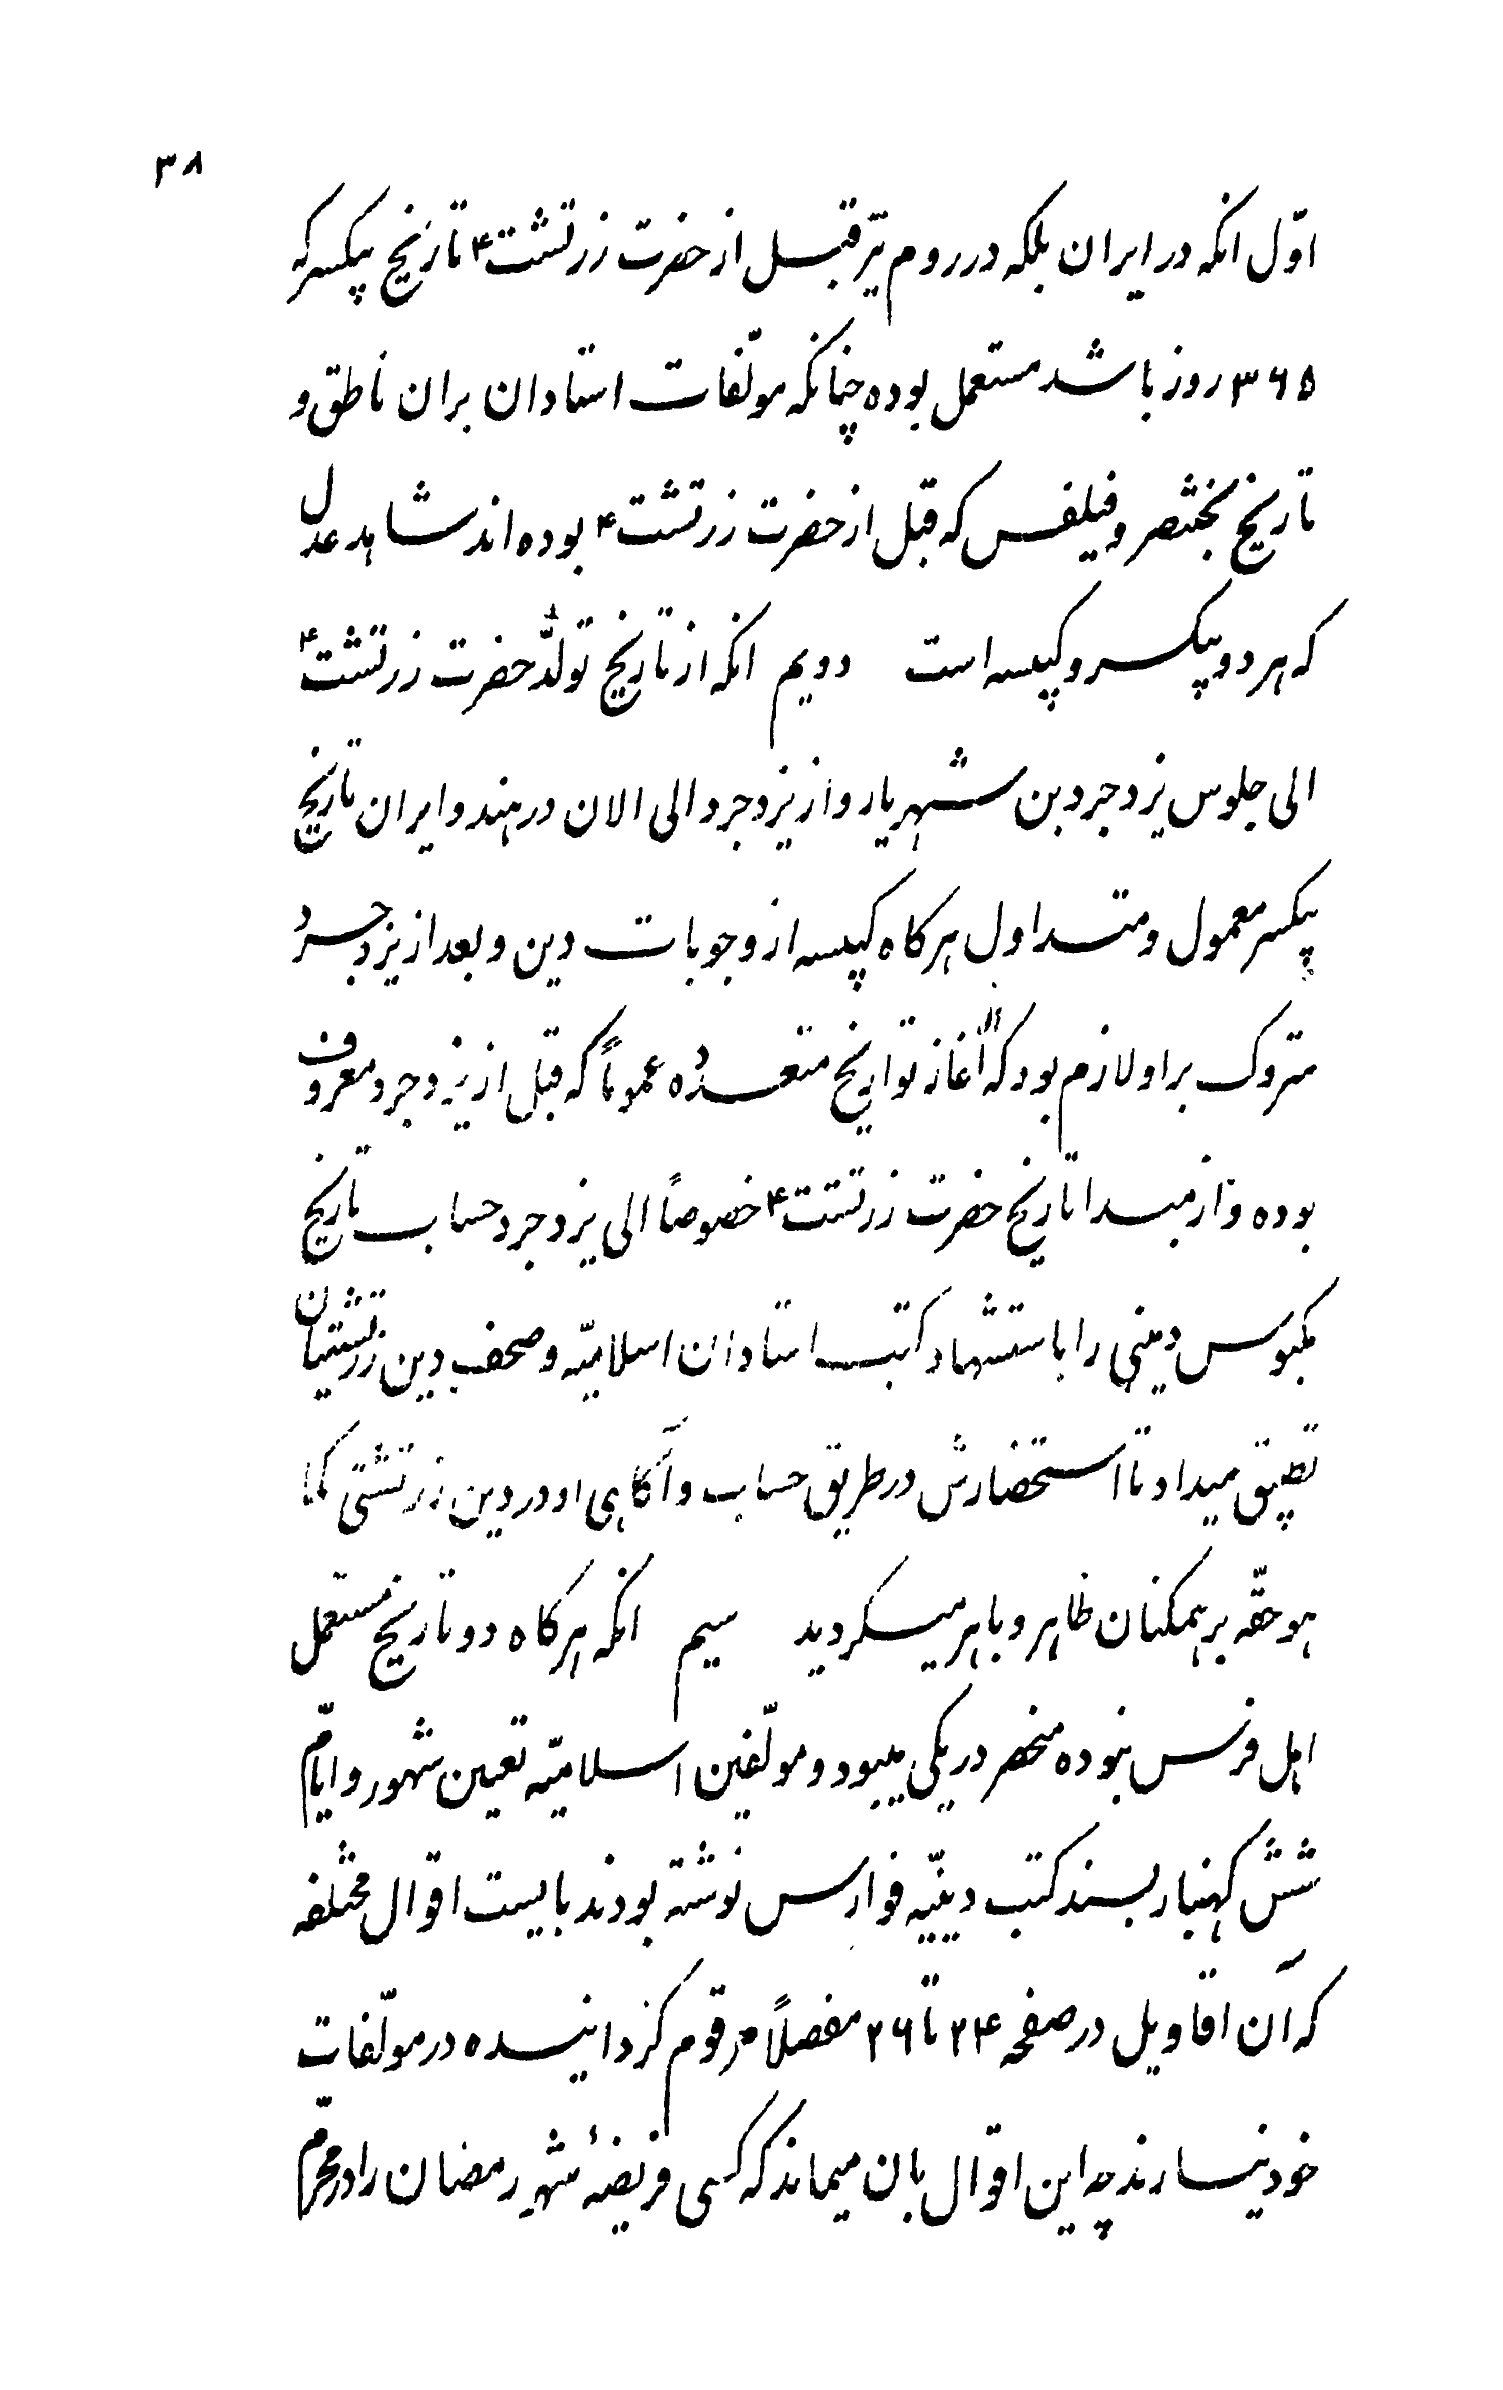 ۳۸
اوّل انکه در ایران بلکه در روم نیز قبل از حضرت زرتشت۴ تاریخ بیکسر که
۳۶۵ روز باشد مستعمل بوده چنانکه مولّفات استادان بران ناطق و
تاریخ بختنصر و فیلفس که قبل از حضرت زرتشت۴ بوده اند شاهد عدل
که هر دو بیکسر و کبیسه است دویم انکه از تاریخ تولّد حضرت زرتشت۴
الی جلوس یزدجرد بن شهریار و از یزدجرد الی الان در هند و ایران تاریخ
بیکسر معمول و متداول هرکاه کبیسه از وجوبات دین و بعد از یزدجرد
متروک بر او لازم بود که آغاز تواریخ متعدده عموماً که قبل از یزدجرد معروف
بوده و از مبدا تاریخ حضرت زرتشت۴ خصوصاً الی یزدجرد حساب تاریخ
مکبوس دینی را باستشهاد کتب استادان اسلامیّه و صحف دین زرتشتیان
تطبیق میداد تا استحضارش در طریق حساب و آکاهی او در دین زرتشتی کما
هو حقّه بر همکنان ظاهر و باهر میکردید سیم انکه هرکاه دو تاریخ مستعمل
اهل فرس نبوده منحصر در یکی میبود و مولّفین اسلامیّه تعین شهور و ایّام
شش کهنبار بسند کتب دینیّه فوارس نوشته بودند بایست اقوال مختلفه
که آن اقاویل در صفحه ۲۴ تا ۲۶ مفصلاً مرقوم کردانیده در مولّفات
خود نیارند چه این اقوال بان میماند که کسی فریضهٔ شهر رمضان را در محرّم